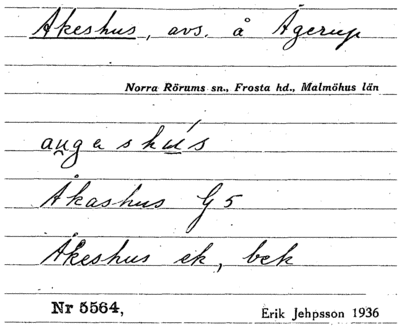 Åkeshus, avs. å Ågerup
Norra Rörums sn., Frosta hd., Malmöhus län
au̯gashú̲s
Åkashus G5
Åkeshus ek, bek
Nr 5564,
Erik Jehpsson 1936